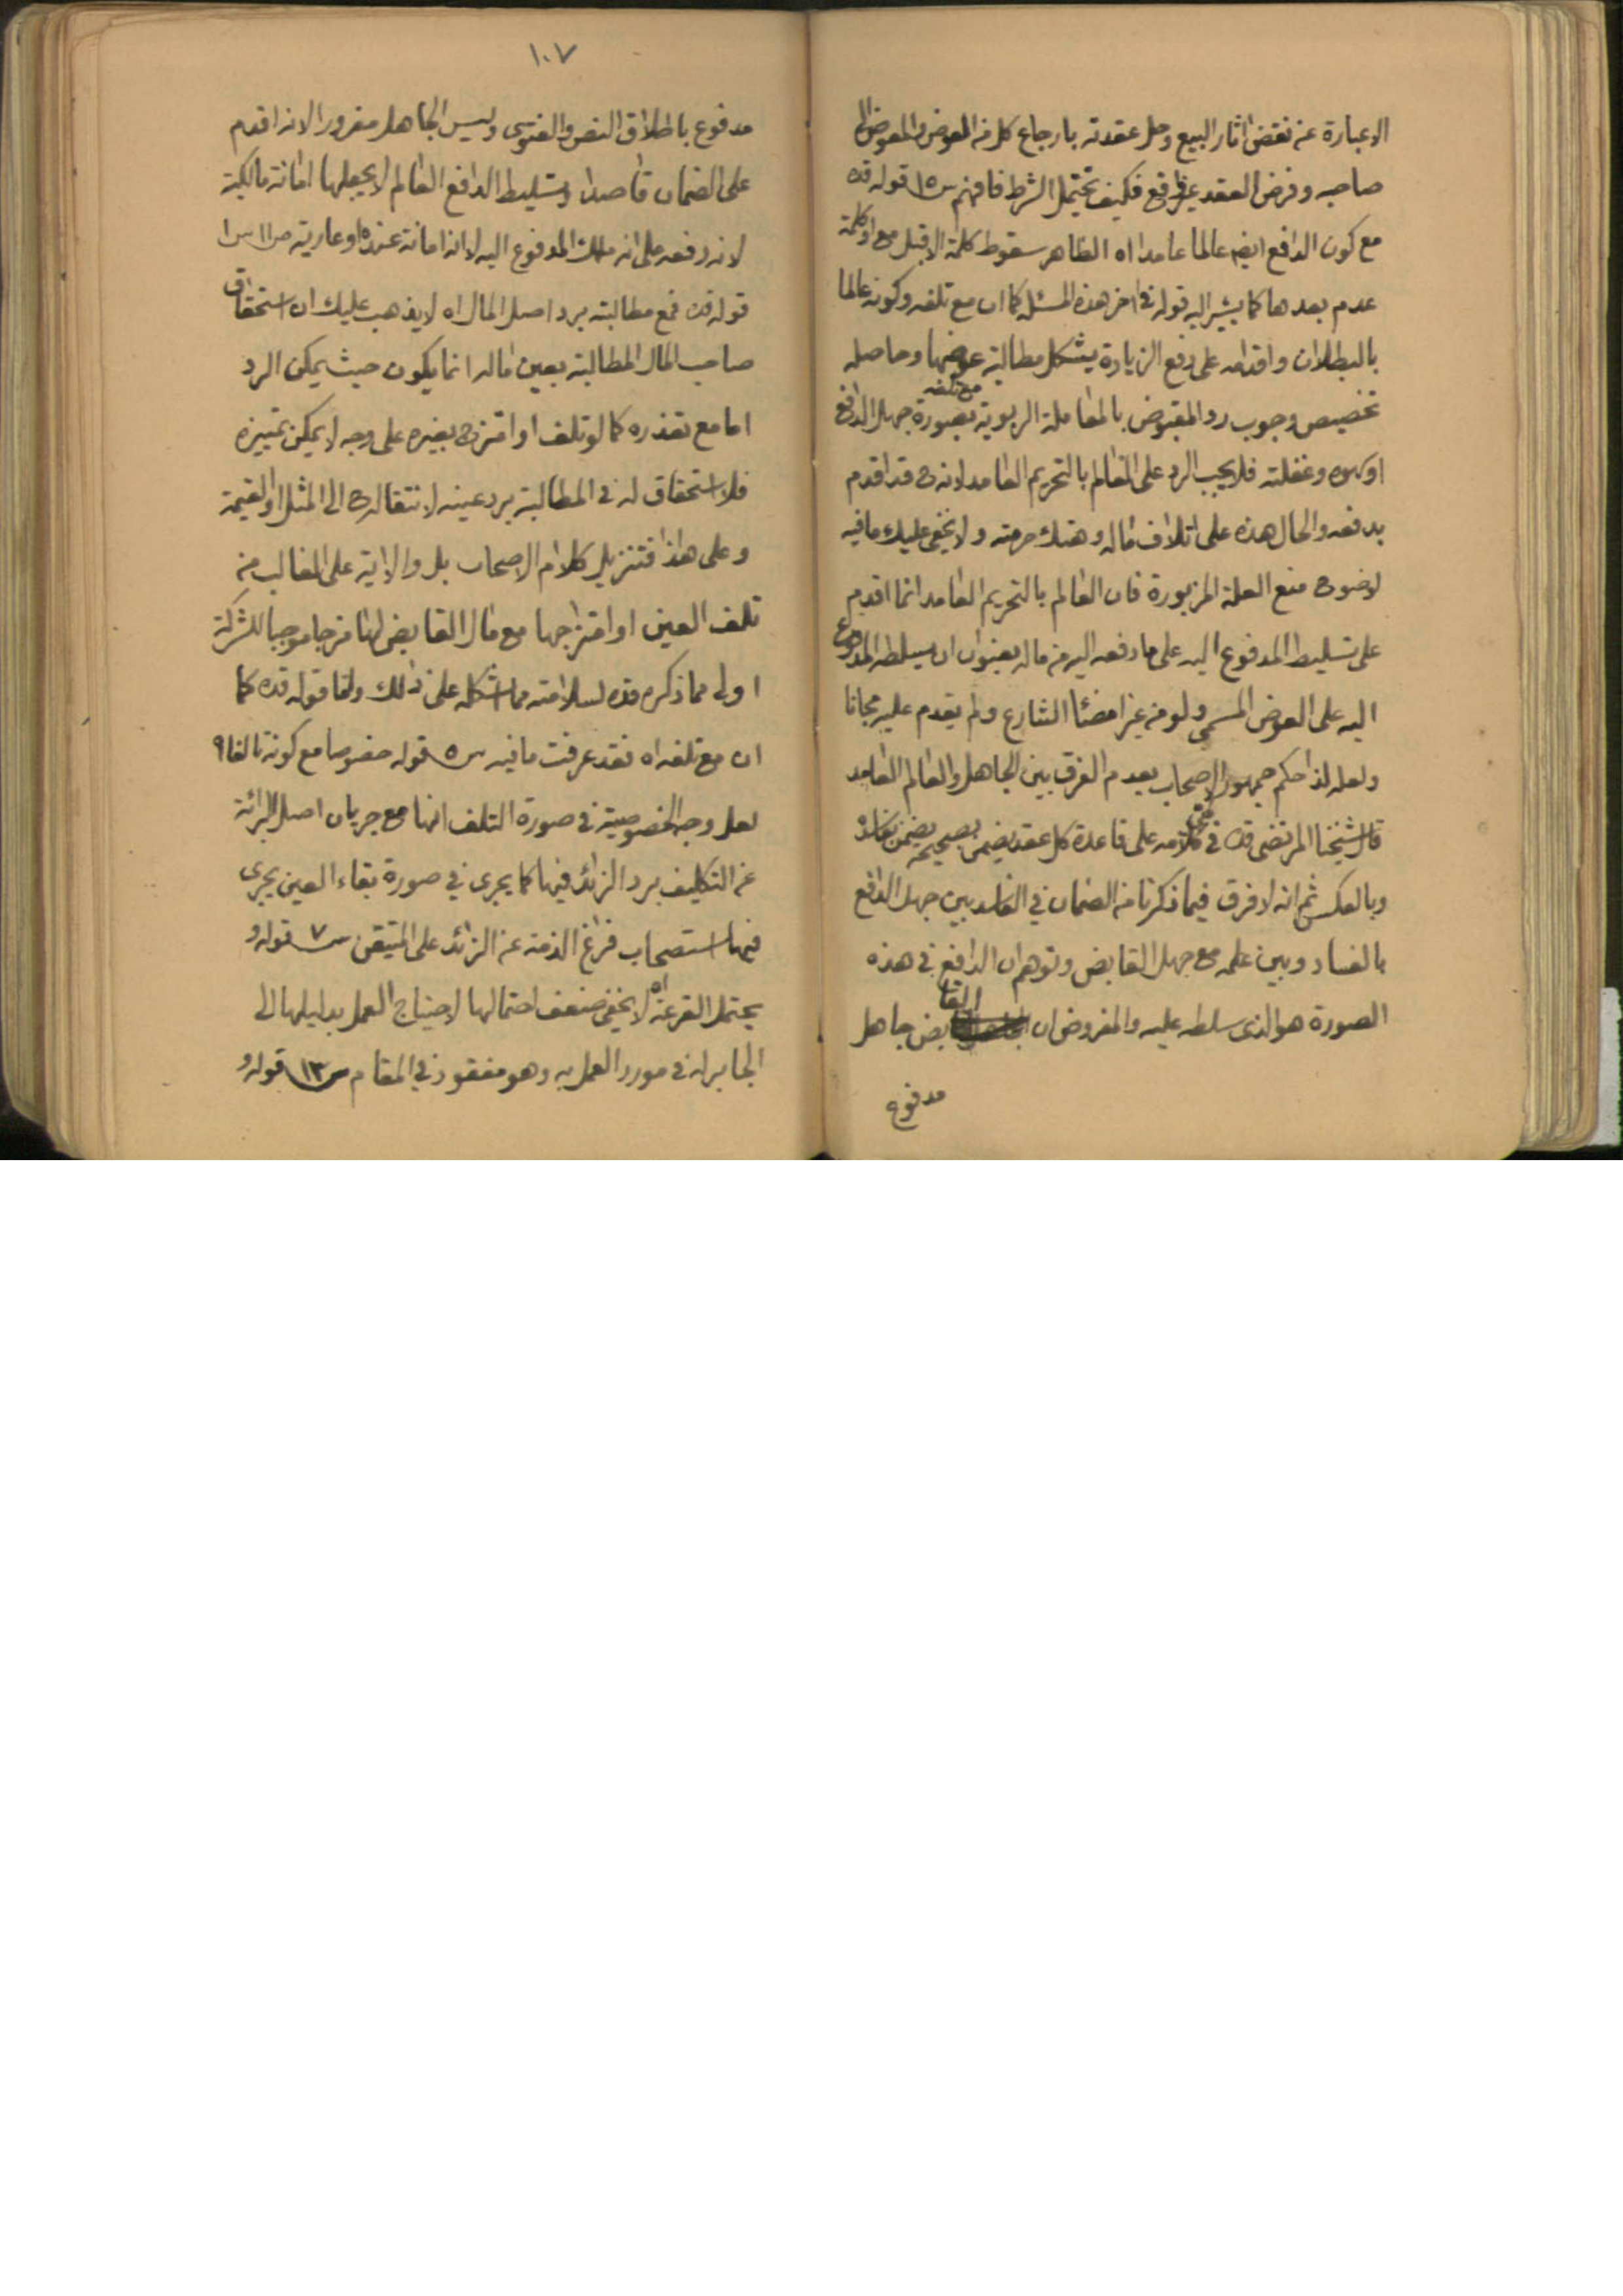 الاعبارة عن نقض اثار البيع وحل عقدته بارجاع كل من العوض والمعوض الى
صاحبه وفرض العقد غير فكيف يحتمل الشرط فافهم س١٥ قوله قده
مع كون الدافع ايضم عالما عامدا اه الظاهر سقوط كلمة الا قبل مع او كلمة
عدم بعدها كما يشير اليه قوله في اخر هذه المسئلة كما ان مع تلفه وكونه عالما
بالبطلان واقدامه على دفع الزيادة يشكل مطالبة عوضها وحاصله
تخصيص وجوب رد المقبوض بالمعاملة الربوية مع تلفه بصورة جهل الدافع
او وغفلته فلا يجب الرد على العالم بالتحريم العامد لانه ح قد اقدم
بدفعه والحال هذه على اتلاف ماله وهتك حرمته ولا يخفى عليك ما فيه
لوضوح منع العلة المزبورة فان العالم بالتحريم العامد انما اقدم
على تسليط المدفوع اليه على ما دفعه اليه من ماله بعنوان ان يسلطه المدفوع
اليه على العوض المسمى ولو من غير امضاء الشارع ولم يقدم عليه مجانا
ولعله لذا حكم جمهور الاصحاب بعدم الفرق بين الجاهل والعالم العامد
قال شيخنا المرتضى قده في كلامه على قاعدة كل عقد يضمن بصحيحه يضمن بفاسده
وبالعكس ثم انه لا فرق فيما ذكرنا من الضمان في الفاسد بين جهل الدافع
بالفساد وبين علمه مع جهل القابض وتوهم ان الدافع في هذه
الصورة هو الذى سلطه عليه والمفروض ان القابض جاهل
مدفوع
١٠٧
مدفوع باطلاق النص والفتوى وليس الجاهل مغرورا لانه اقدم
على الضمان قاصدا وتسليط الدافع العالم لا يجعلها امانة مالكية
لانه دفعه على انه ملك المدفوع اليه لا انه امانة عنده او عارية ص١١ س١
قوله قده فمع مطالبته برد اصل المال اه لا يذهب عليك ان استحقاق
صاحب المال المطالبة بعين ماله انما يكون حيث يمكن الرد
اما مع تعذره كما لو تلف او امتزج بغيره على وجه لا يمكن تمييزه
فلا استحقاق له في المطالبة برد عينه لانتقاله ح الى المثل او القيمة
وعلى هذا فتنزيل كلام الاصحاب بل والاية على الغالب من
تلف العين او امتزاجها مع مال القابض لها مزجا موجبا للشركة
اولى مما ذكره قده لسلامته مما اشكله على ذلك واما قوله قده كما
ان مع تلفه اه فقد عرفت ما فيه س٥ قوله خصوصا مع كونه تالفا ٩
لعل وجه الخصوصية في صورة التلف انها مع جريان اصل البرائة
عن التكليف برد الزائد فيها كما يجرى في صورة بقاء العين يجرى
فيها استصحاب فراغ الذمة عن الزائد على المتيقن س٧ قوله و
يحتمل القرعة اه لا يخفى ضعف احتمالها لاحتياج العمل بدليلها الى
الجابر له في مورد العمل به وهو مفقود في المقام س١٣ قوله و